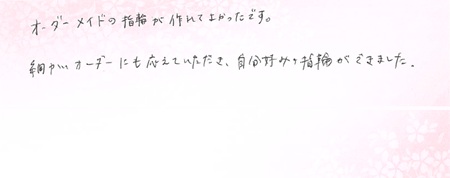 オーダーメイドの指輪が作れてよかったです。
細かいオーダーにも応えていただき、自分好みの指輪ができました.